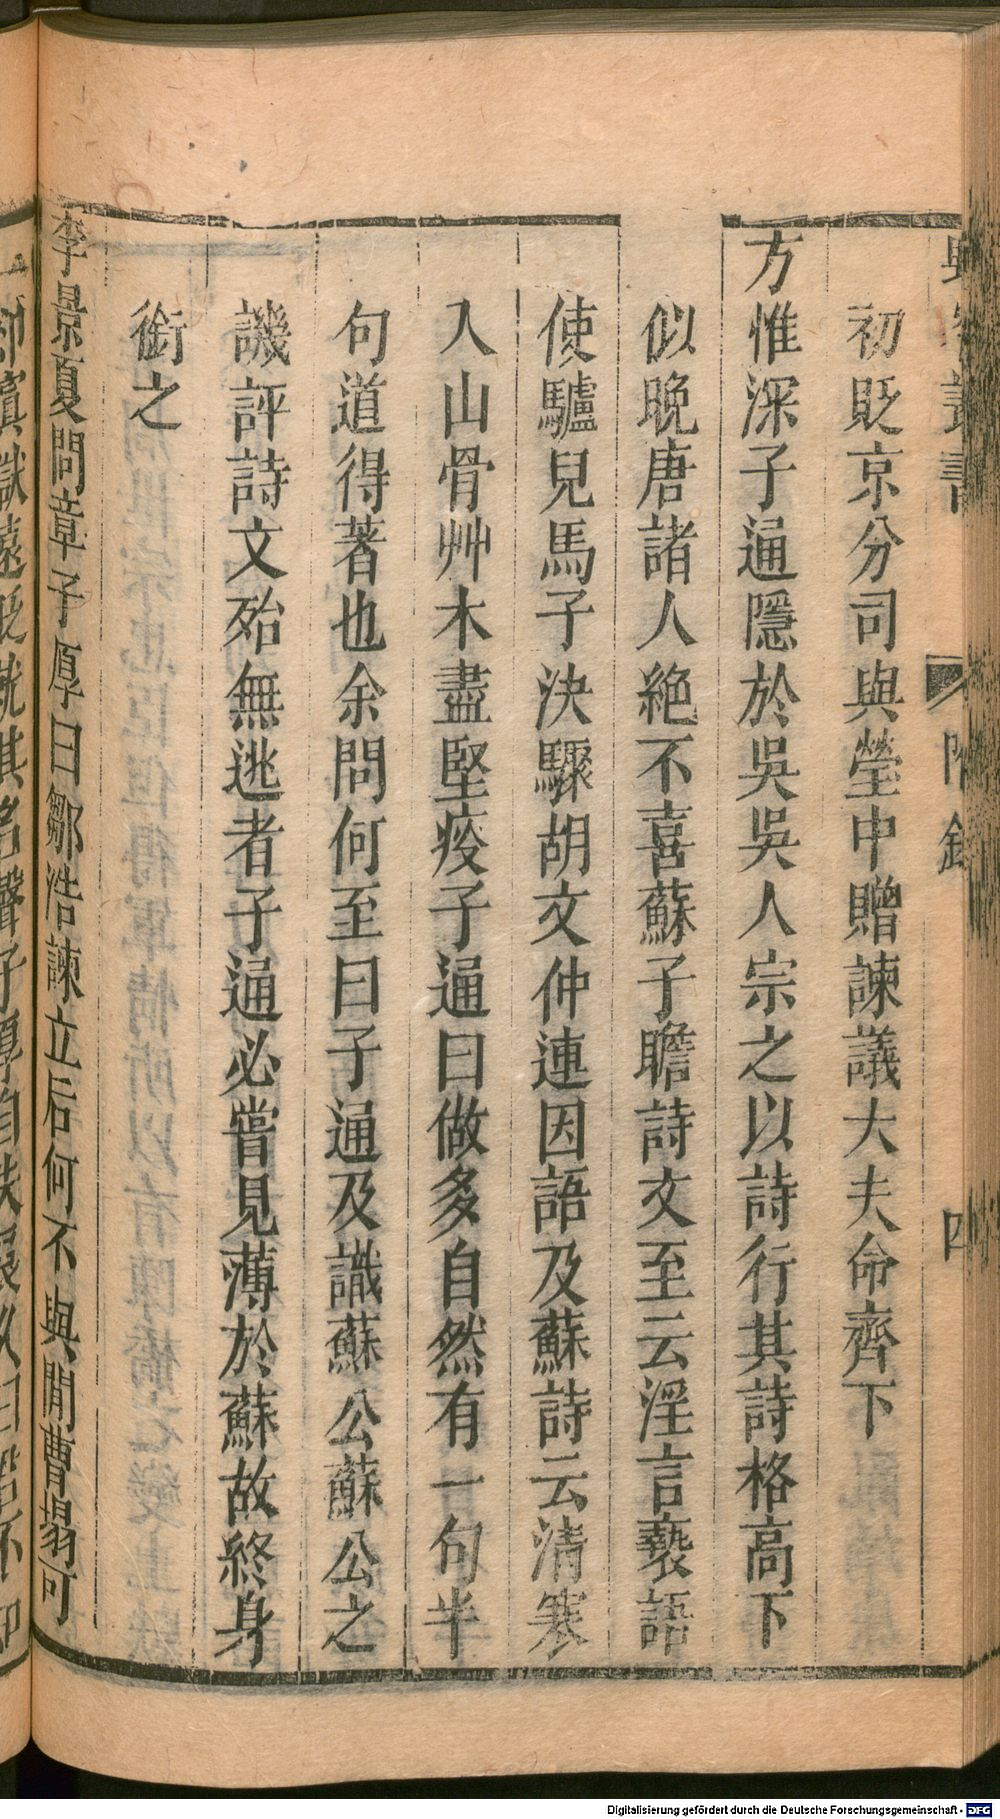 初貶京分司與瑩中贈諫議大夫命齊下
方惟深子通隱於吳吳人宗之以詩行其詩格高下
似晚唐諸人絶不喜蘇子瞻詩文至云淫言褻語
使驢兒馬子決驟胡文仲連因語及蘇詩云清寒
入山骨艸木盡堅瘦子通曰做多自然有一句半
句道得著也余問何至曰子通及識蘇公蘇公之
譏評詩文殆無逃者子通必嘗見薄於蘇故終身
銜之
李景夏問章子厚曰鄒浩諫立后何不與閒曹搨可
Digitalisierung gefördert durch die Deutsche Forschungsgemeinschaft - DFG